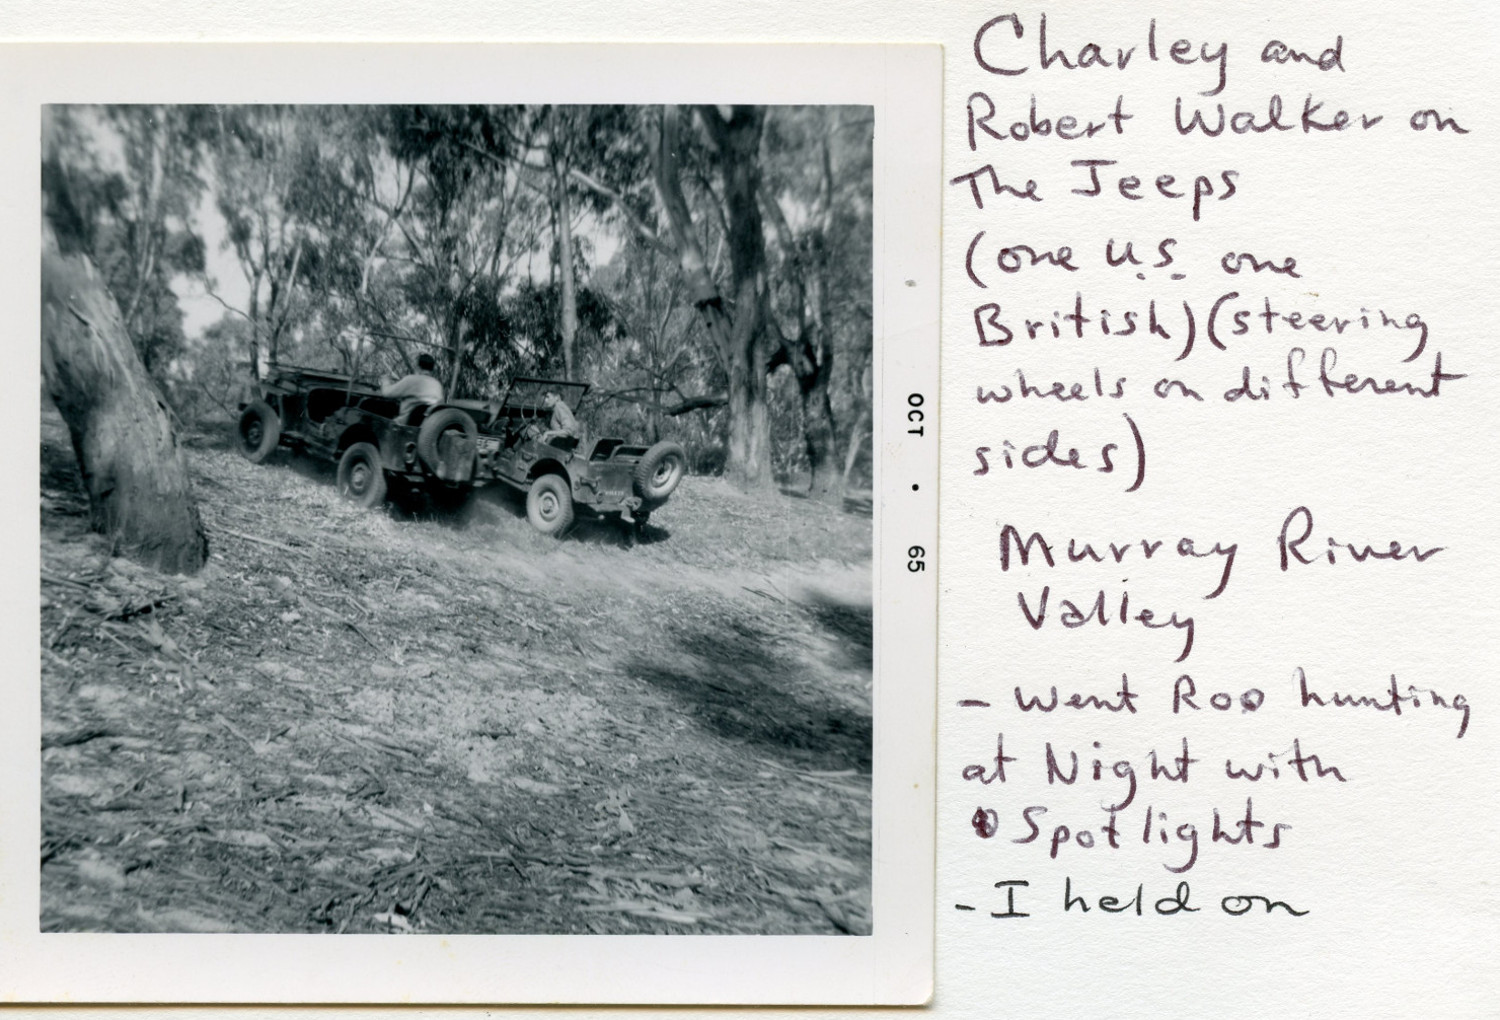 OCT • 65
Charley and
Robert Walker on
The Jeeps
(one U.S. one
British) (steering
wheels on different
sides)
Murray River
Valley
- Went Roo hunting
at Night with
Spotlights
- I held on